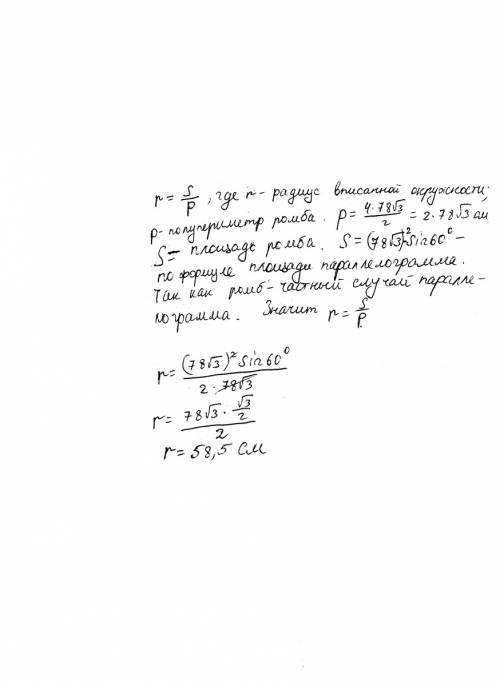 r = S/p, где r - радиус вписанной окружности;
p - полупериметр ромба. p = 4·78√3/2 = 2·78√3 см,
S - площадь ромба. S = (78√3)² Sin60° -
по формуле площади параллелограмма.
Так как ромб - частный случай паралле-
лограмма. Значит r = S/p
r = (78√3)² Sin60° / 2·78√3
r = 78√3 · √3/2 / 2
r = 58,5 см